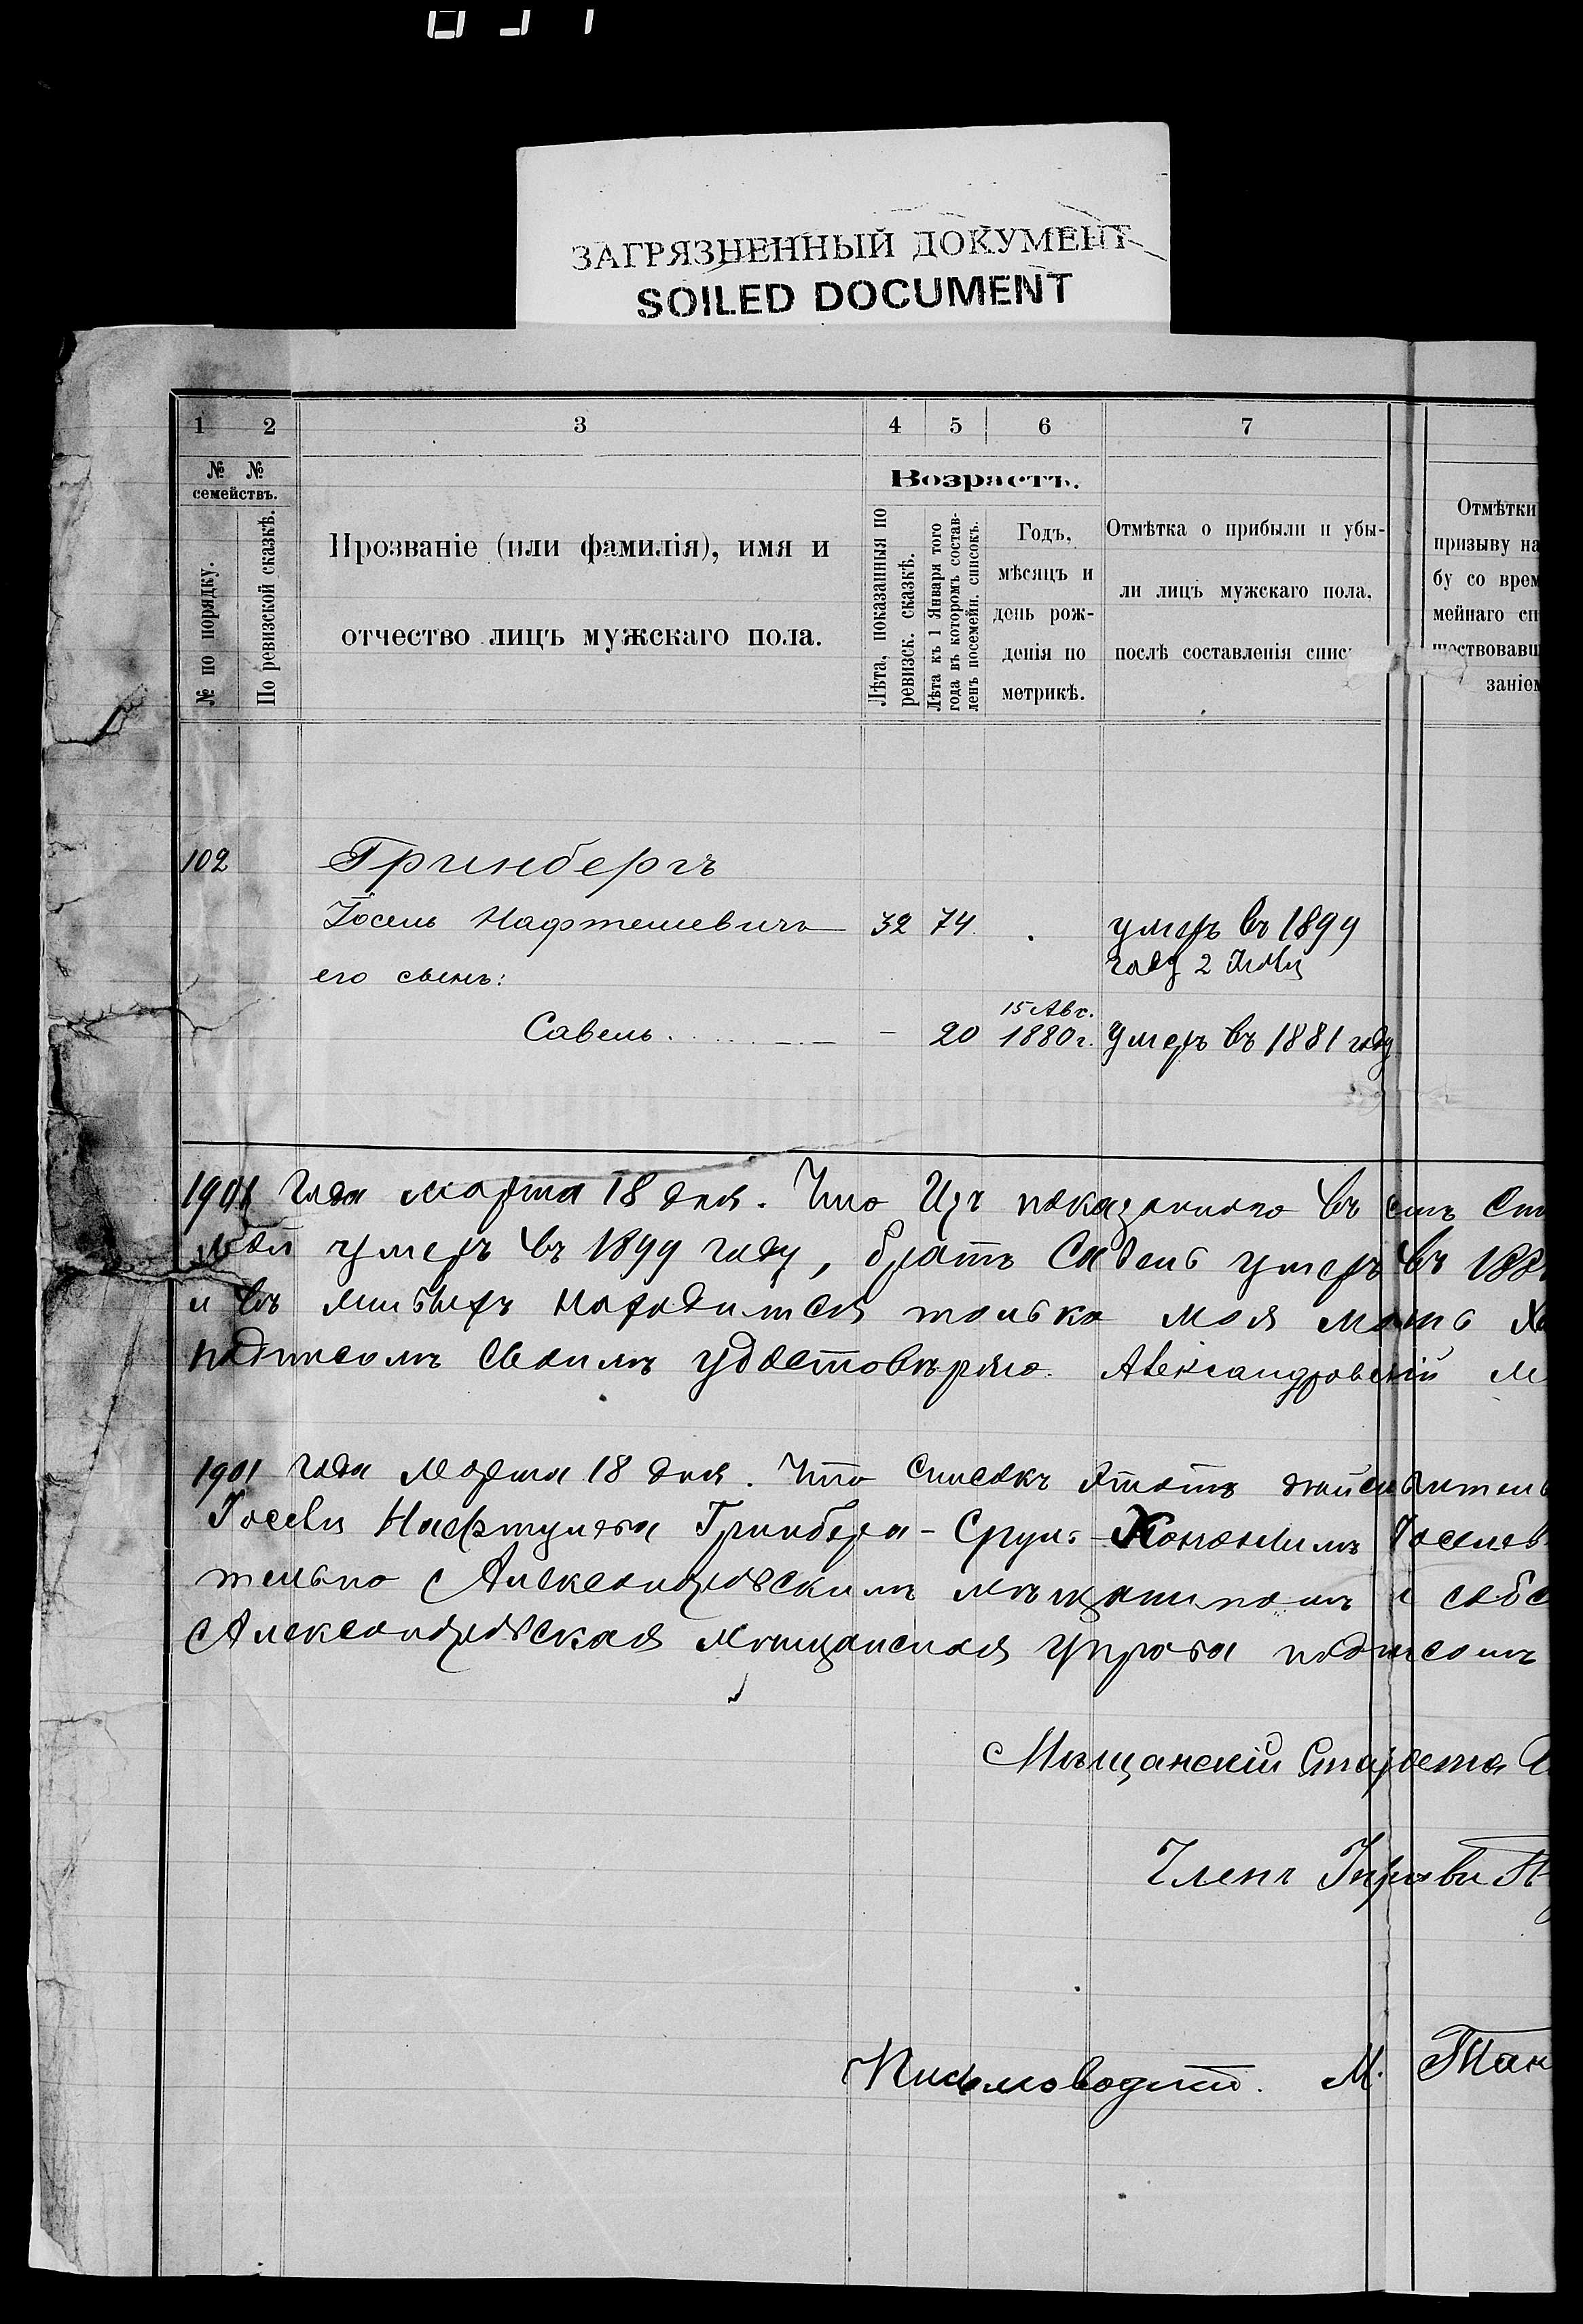 ЗАГРЯЗНЕННЫЙ ДОКУМЕНТ
SOILED DOCUMENT
1 2 3 4 5 6 7
№ №
семействъ.
№ по порядку.
По ревизской сказкѣ.
Прозваніе (или фамилія), имя и
отчество лицъ мужскаго пола.
Возрастъ.
Лѣта, показанныя по
ревизск. сказкѣ.
Лѣта къ 1 Января того
года въ которомъ состав-
ленъ посемейн. списокъ.
Годъ,
мѣсяцъ и
день рож-
денія по
метрикѣ.
Отмѣтка о прибыли и убы-
ли лицъ мужскаго пола,
послѣ составленія спис
Отмѣтки
призыву на
бу со врем
мейнаго сп
шествовавш
заніем
102 Гринбергъ
Іосель Нафтелевичъ 32 74 умеръ въ 1899
году 2
его сынъ:
15 Авг.
Савель - 20 1880 г. умеръ въ 1881 году
1901 года марта 18 дня. Что показанного въ семъ
умеръ въ 1899 году, братъ Савель умеръ въ 188
и въ находится только моя мать
подписомъ своимъ удостовѣряю. Александровскій м
1901 года марта 18 дня. Что списокъ этотъ
Гринберга - Сруль-
тельно Александровскимъ мѣщаниномъ и
Александровская мѣщанская управа подписомъ
Мѣщанскій Староста
Членъ Управы
Письмоводит. М. Тан